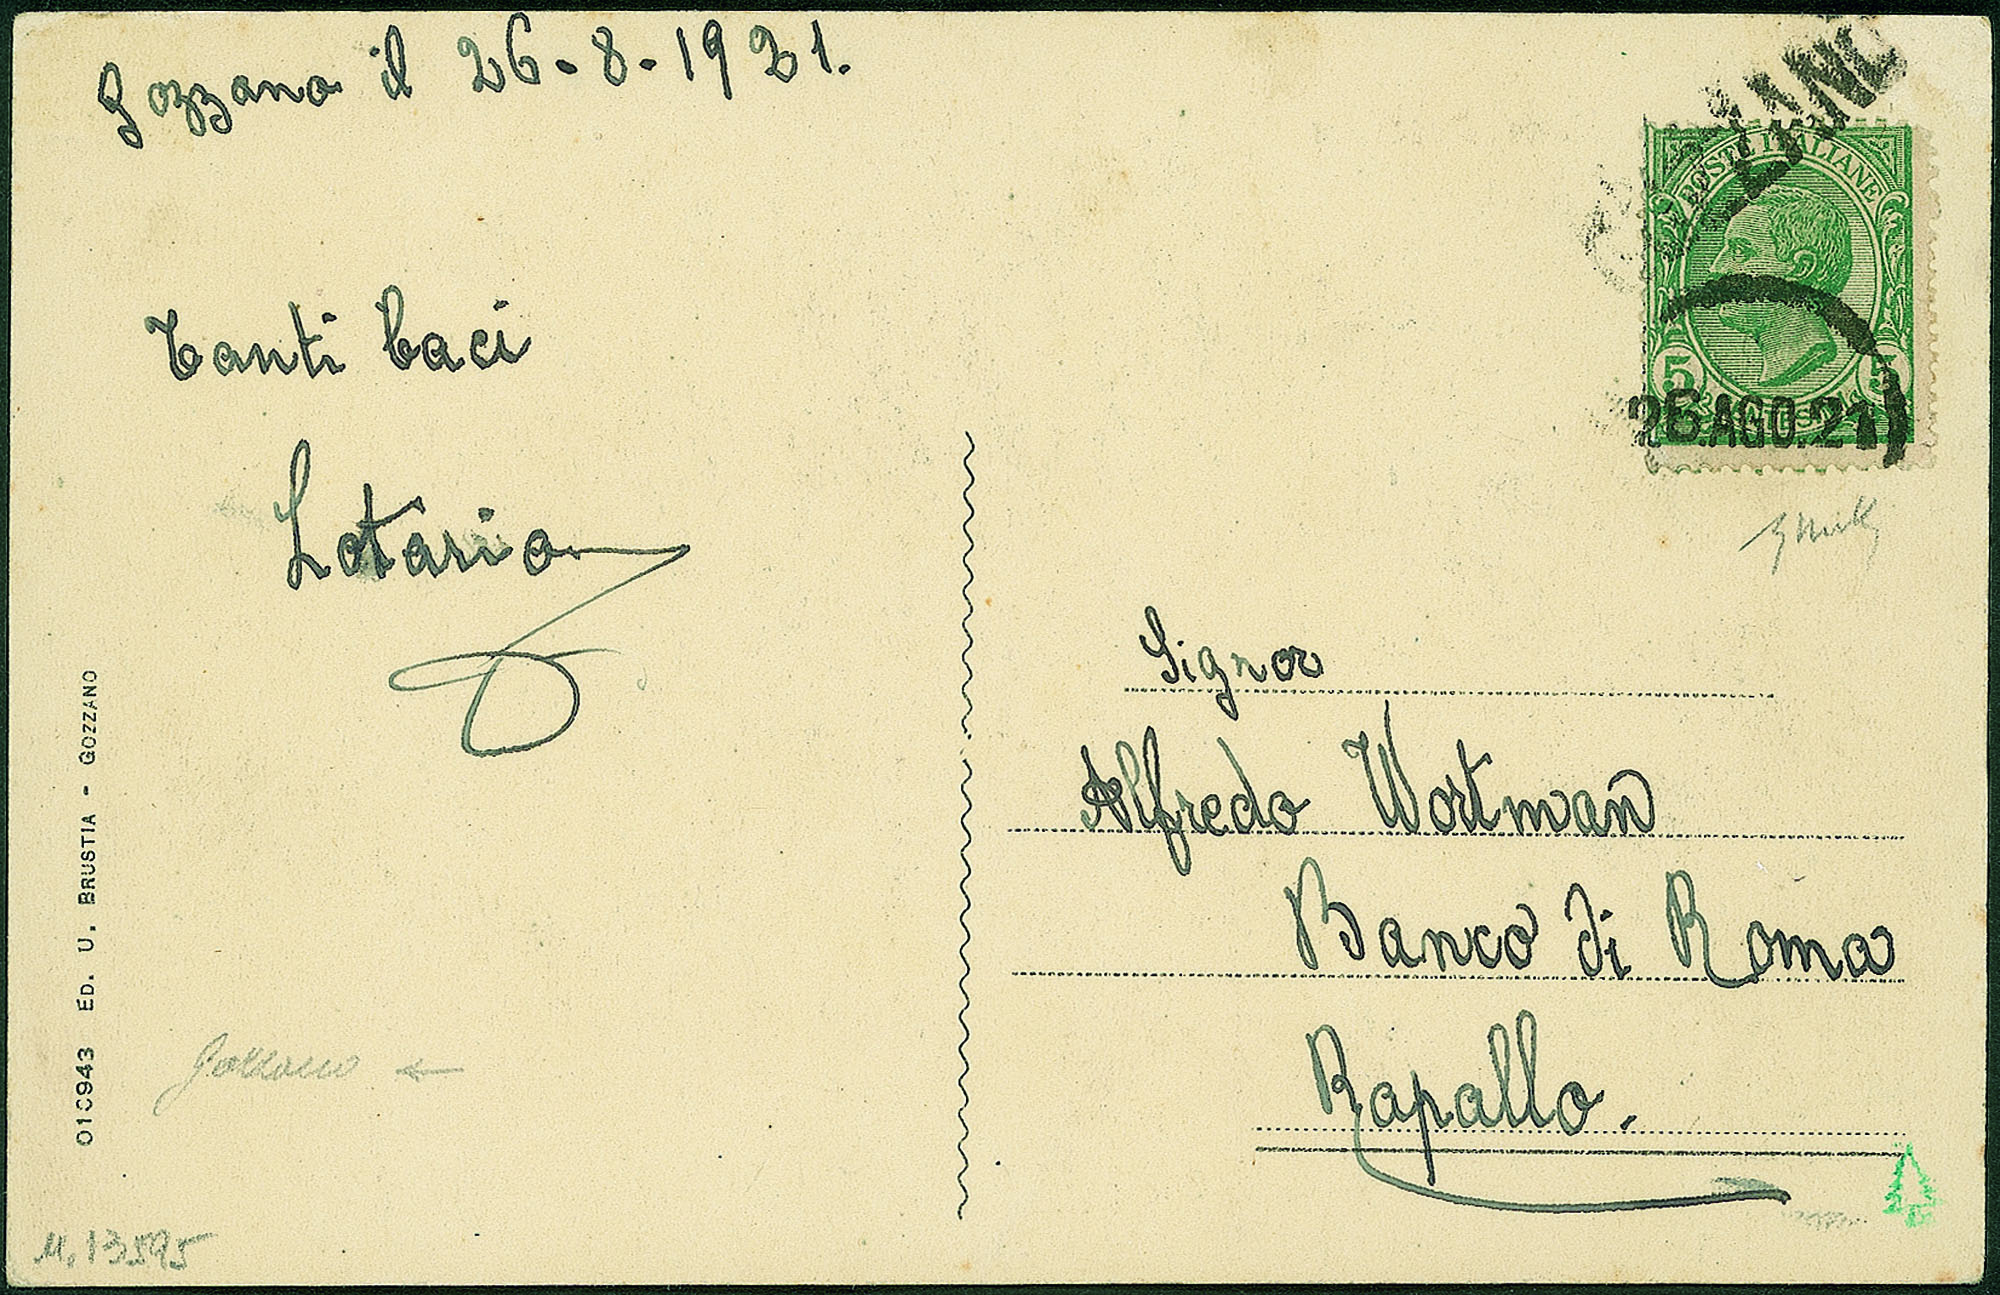 Gozzano il 26-8-1921.
Tanti baci
Lotario
POSTE ITALIANE
5 5
26.AGO.21
Signor
Alfredo Wortman
Banco di Roma
Rapallo.
010943 ED. U. BRUSTIA - GOZZANO
Gozzano ←
13595